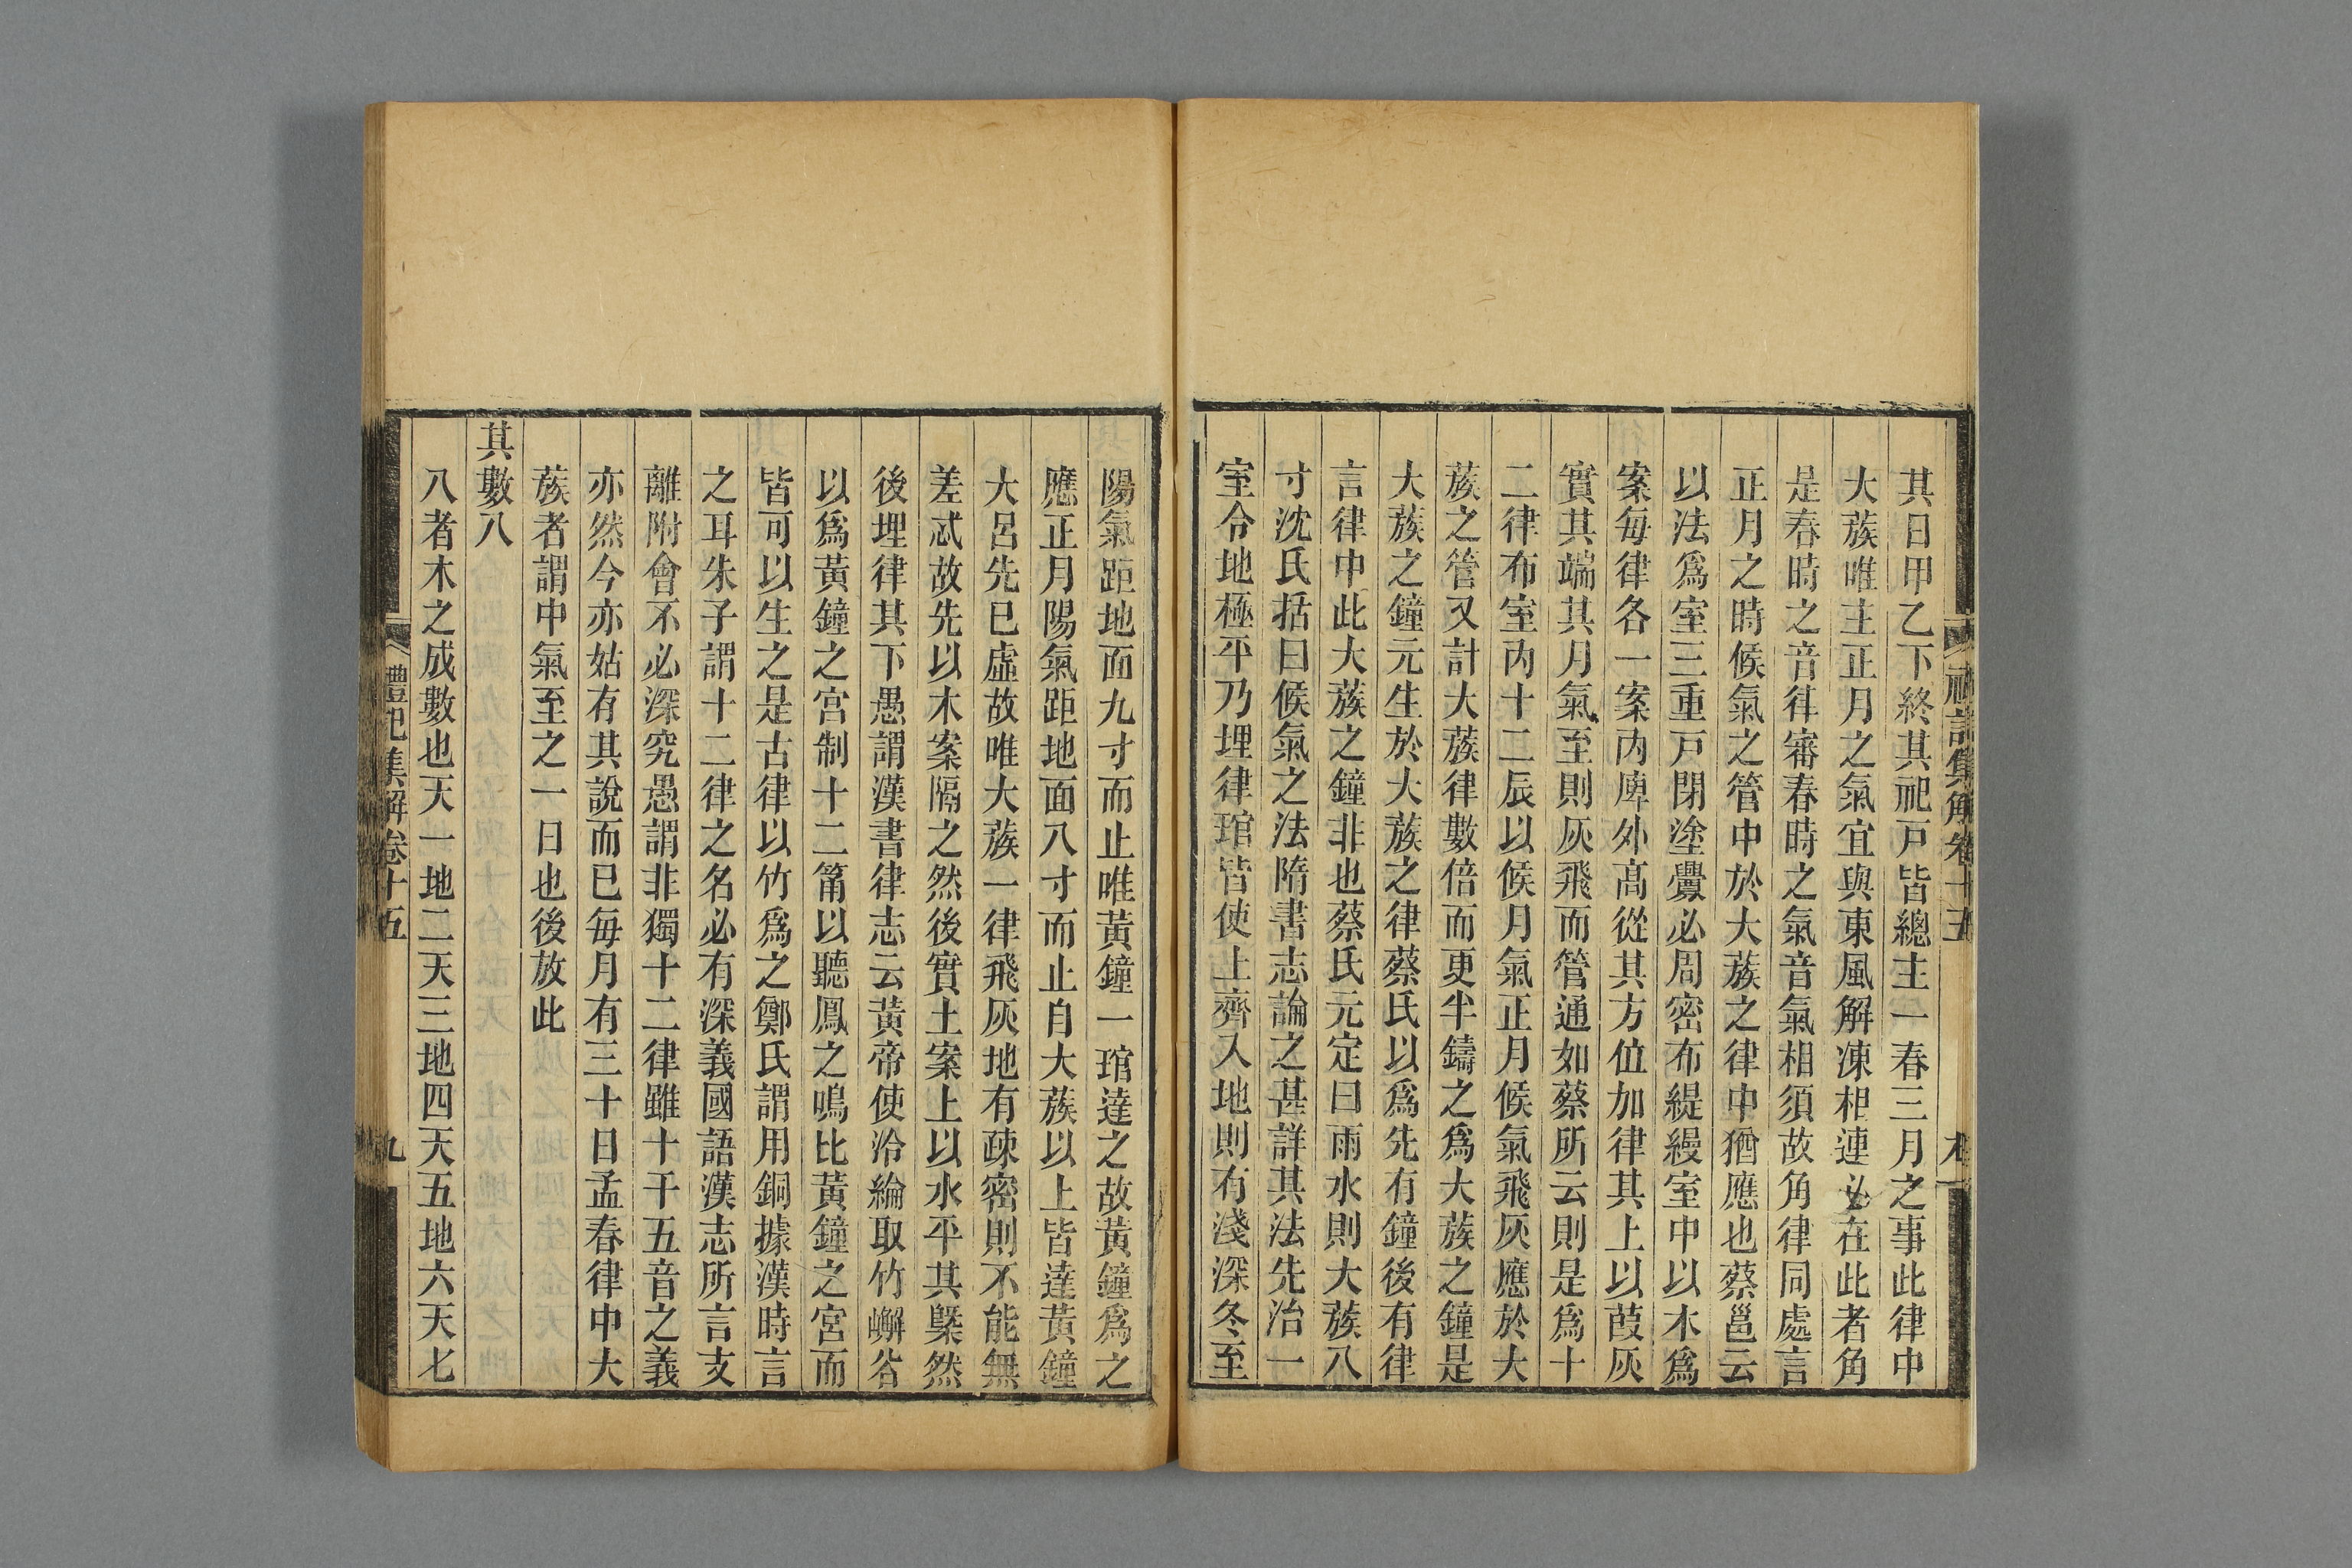 禮記集解卷十五
其日甲乙下終其祀戸皆總主一春三月之事此律中
大蔟唯主正月之氣宜與東風解凍相連必在此者角
是春時之音律審春時之氣音氣相須故角律同處言
正月之時候氣之管中於大蔟之律中猶應也蔡邕云
以法爲室三重戸閉塗釁必周密布緹縵室中以木爲
案毎律各一案内庳外高從其方位加律其上以葭灰
實其端其月氣至則灰飛而管通如蔡所云則是爲十
二律布室内十二辰以候月氣正月候氣飛灰應於大
蔟之管又計大蔟律數倍而更半鑄之爲大蔟之鐘是
大蔟之鐘元生於大蔟之律蔡氏以爲先有鐘後有律
言律中此大蔟之鐘非也蔡氏元定曰雨水則大蔟八
寸沈氏括曰候氣之法隋書志論之甚詳其法先治一
室令地極平乃埋律琯皆使上齊入地則有淺深冬至
陽氣距地面九寸而止唯黃鐘一琯達之故黃鐘爲之
應正月陽氣距地面八寸而止自大蔟以上皆達黃鐘
大呂先巳虛故唯大蔟一律飛灰地有疎密則不能無
差忒故先以木案隔之然後實土案上以水平其槩然
後埋律其下愚謂漢書律志云黃帝使泠綸取竹嶰谷
以爲黃鐘之宮制十二筩以聽鳳之鳴比黃鐘之宮而
皆可以生之是古律以竹爲之鄭氏謂用銅據漢時言
之耳朱子謂十二律之名必有深義國語漢志所言支
離附會不必深究愚謂非獨十二律雖十干五音之義
亦然今亦姑有其說而巳毎月有三十日孟春律中大
蔟者謂中氣至之一日也後放此
其數八
八者木之成數也天一地二天三地四天五地六天七
禮記集解卷十五
九